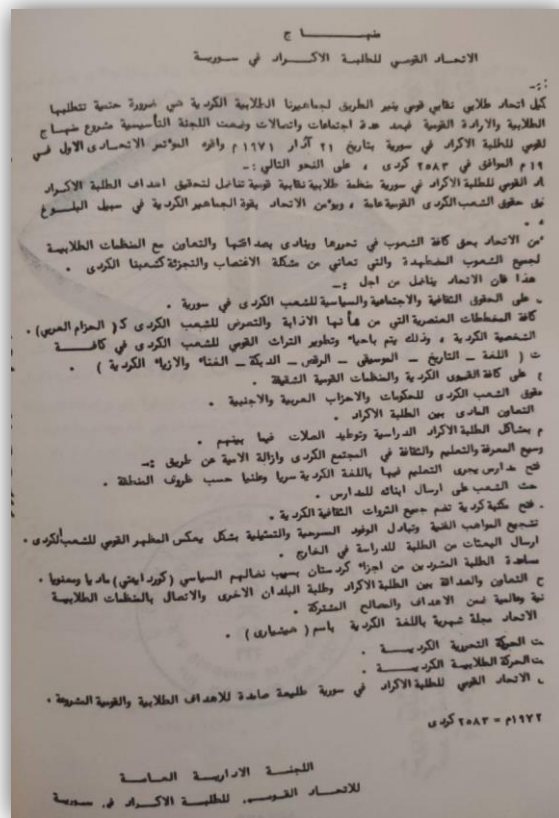 منهـــــــاج
الاتحاد القومي للطلبة الاكـــراد في سوريـة
:ـ
اتحاد طلابي نقابي قومي ينير الطريق لجماهيرنا الطلابية الكردية هي ضرورة حتمية تتطلبها
الطلابية والارادة القومية فبعد عدة اجتماعات واتصالات وضعت اللجنة التأسيسية مشروع منهـاج
القومي للطلبة الاكراد في سورية بتاريخ ٢١ آذار ١٩٧١ م واقره المؤتمر الاتحادى الاول فـي
١٩م الموافق في ٢٥٨٣ كردى ، على النحو التالي :ـ
القومي للطلبة الاكراد في سورية منظمة طلابية نقابية قومية تناضل لتحقيق اهداف الطلبة الاكـراد
حقوق الشعب الكردى القومية عامة ، ويؤمن الاتحاد بقوة الجماهير الكردية في سبيل البلــوغ
الاتحاد بحق كافة الشعوب في تحررها وينادى بصداقتها والتعاون مع المنظمات الطلابيـة
لجميع الشعوب المضطهدة والتي تعاني من مشكلة الاغتصاب والتجزئة كشعبنا الكردى .
هذا فان الاتحاد يناضل من اجل :ـ
على الحقوق الثقافية والاجتماعية والسياسية للشعب الكردى في سورية .
كافة المخططات العنصرية التي من شأنها الاذابة والتعرض للشعب الكردى كـ ( الحزام العربي) .
الشخصية الكردية ، وذلك يتم باحياء وتطوير التراث القومي للشعب الكردى في كافــــة
ت ( اللغة ـ التاريخ ـ الموسيقى ـ الرقص ـ الدبكة ـ الغناء والازياء الكردية ) .
على كافة القوى الكردية والمنظمات القومية الشقيقة .
حقوق الشعب الكردى للحكومات والاحزاب العربية والاجنبية .
التعاون المادى بين الطلبة الاكراد .
م بمشاكل الطلبة الاكراد الدراسية وتوطيد الصلات فيما بينهم .
وسيع المعرفة والتعليم والثقافة في المجتمع الكردى وازالة الامية عن طريق :ـ
فتح مدارس يجرى التعليم فيها باللغة الكردية سريا وعلنيا حسب ظروف المنطقة .
حث الشعب على ارسال ابنائه للمدارس .
. فتح مكتبة كردية تضم جميع الثروات الثقافية الكردية .
تشجيع المواهب الفنية وتبادل الوفود المسرحية والتمثيلية بشكل يعكس المظهر القومي للشعب الكردى .
ارسال البعثات من الطلبة للدراسة في الخارج .
مساعدة الطلبة المشردين من اجزاء كردستان بسبب نضالهم السياسي (كورد ايتي) ماديا ومعنويا .
ح التعاون والصداقة بين الطلبة الاكراد وطلبة البلدان الاخرى والاتصال بالمنظمات الطلابيـة
وعالمية ضمن الاهداف والمصالح المشتركة .
الاتحاد مجلة شهرية باللغة الكردية باسم ( ) .
الحركة التحررية الكرديــــة .
الحركة الطلابيـة الكرديــــة .
الاتحاد القومي للطلبة الاكراد في سورية طليعة صامدة للاهداف الطلابية والقومية المشروعة .
١٩٧٢م = ٢٥٨٣ كردى
اللجنـــة الاداريـــة العـامـــة
للاتحاد القومي للطلبـة الاكـراد في سوريـة